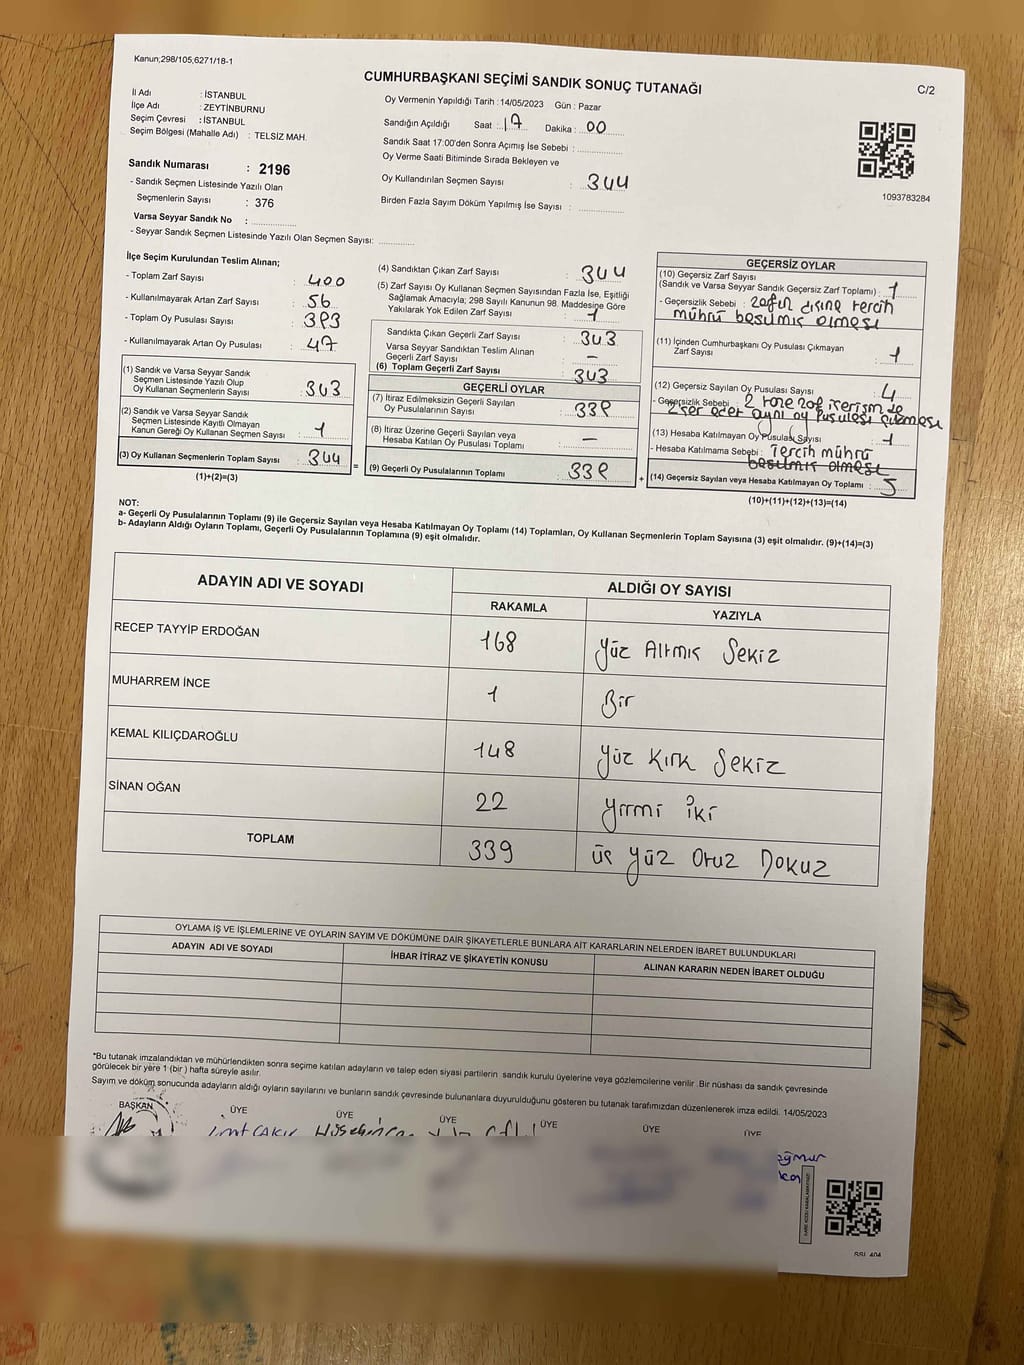 Kanun;298/105;6271/18-1
CUMHURBAŞKANI SEÇİMİ SANDIK SONUÇ TUTANAĞI
C/2
İl Adı : İSTANBUL
İlçe Adı : ZEYTİNBURNU
Seçim Çevresi : İSTANBUL
Seçim Bölgesi (Mahalle Adı) : TELSİZ MAH.
Sandık Numarası : 2196
- Sandık Seçmen Listesinde Yazılı Olan
Seçmenlerin Sayısı : 376
Varsa Seyyar Sandık No :
- Seyyar Sandık Seçmen Listesinde Yazılı Olan Seçmen Sayısı:
Oy Vermenin Yapıldığı Tarih : 14/05/2023 Gün : Pazar
Sandığın Açıldığı Saat : 17 Dakika : 00
Sandık Saat 17:00'den Sonra Açımış İse Sebebi :
Oy Verme Saati Bitiminde Sırada Bekleyen ve
Oy Kullandırılan Seçmen Sayısı : 344
Birden Fazla Sayım Döküm Yapılmış İse Sayısı :
1093783284
İlçe Seçim Kurulundan Teslim Alınan;
- Toplam Zarf Sayısı : 400
- Kullanılmayarak Artan Zarf Sayısı : 56
- Toplam Oy Pusulası Sayısı : 393
- Kullanılmayarak Artan Oy Pusulası : 47
(1) Sandık ve Varsa Seyyar Sandık
Seçmen Listesinde Yazılı Olup
Oy Kullanan Seçmenlerin Sayısı : 343
(2) Sandık ve Varsa Seyyar Sandık
Seçmen Listesinde Kayıtlı Olmayan
Kanun Gereği Oy Kullanan Seçmen Sayısı : 1
(3) Oy Kullanan Seçmenlerin Toplam Sayısı : 344
(1)+(2)=(3)
(4) Sandıktan Çıkan Zarf Sayısı : 344
(5) Zarf Sayısı Oy Kullanan Seçmen Sayısından Fazla İse, Eşitliği
Sağlamak Amacıyla; 298 Sayılı Kanunun 98. Maddesine Göre
Yakılarak Yok Edilen Zarf Sayısı : 1
Sandıkta Çıkan Geçerli Zarf Sayısı : 343
Varsa Seyyar Sandıktan Teslim Alınan
Geçerli Zarf Sayısı : –
(6) Toplam Geçerli Zarf Sayısı : 343
GEÇERLİ OYLAR
(7) İtiraz Edilmeksizin Geçerli Sayılan
Oy Pusulalarının Sayısı : 339
(8) İtiraz Üzerine Geçerli Sayılan veya
Hesaba Katılan Oy Pusulası Toplamı : –
= (9) Geçerli Oy Pusulalarının Toplamı : 339 +
GEÇERSİZ OYLAR
(10) Geçersiz Zarf Sayısı
(Sandık ve Varsa Seyyar Sandık Geçersiz Zarf Toplamı) : 1
- Geçersizlik Sebebi : zarfın dışına tercih
mührü basılmış olması
(11) İçinden Cumhurbaşkanı Oy Pusulası Çıkmayan
Zarf Sayısı : 1
(12) Geçersiz Sayılan Oy Pusulası Sayısı : 4
- Geçersizlik Sebebi : 2 tane zarf içerisinde
2'şer adet aynı oy pusulası çıkması
(13) Hesaba Katılmayan Oy Pusulası Sayısı : 1
- Hesaba Katılmama Sebebi : Tercih mührü
basılmış olması
(14) Geçersiz Sayılan veya Hesaba Katılmayan Oy Toplamı : 5
(10)+(11)+(12)+(13)=(14)
NOT:
a- Geçerli Oy Pusulalarının Toplamı (9) ile Geçersiz Sayılan veya Hesaba Katılmayan Oy Toplamı (14) Toplamları, Oy Kullanan Seçmenlerin Toplam Sayısına (3) eşit olmalıdır. (9)+(14)=(3)
b- Adayların Aldığı Oyların Toplamı, Geçerli Oy Pusulalarının Toplamına (9) eşit olmalıdır.
ADAYIN ADI VE SOYADI ALDIĞI OY SAYISI
RAKAMLA YAZIYLA
RECEP TAYYİP ERDOĞAN 168 Yüz Altmış Sekiz
MUHARREM İNCE 1 Bir
KEMAL KILIÇDAROĞLU 148 Yüz Kırk Sekiz
SİNAN OĞAN 22 Yirmi iki
TOPLAM 339 üç yüz Otuz Dokuz
OYLAMA İŞ VE İŞLEMLERİNE VE OYLARIN SAYIM VE DÖKÜMÜNE DAİR ŞİKAYETLERLE BUNLARA AİT KARARLARIN NELERDEN İBARET BULUNDUKLARI
ADAYIN ADI VE SOYADI İHBAR İTİRAZ VE ŞİKAYETİN KONUSU ALINAN KARARIN NEDEN İBARET OLDUĞU
*Bu tutanak imzalandıktan ve mühürlendikten sonra seçime katılan adayların ve talep eden siyasi partilerin sandık kurulu üyelerine veya gözlemcilerine verilir. Bir nüshası da sandık çevresinde
görülecek bir yere 1 (bir) hafta süreyle asılır.
Sayım ve döküm sonucunda adayların aldığı oyların sayılarını ve bunların sandık çevresinde bulunanlara duyurulduğunu gösteren bu tutanak tarafımızdan düzenlenerek imza edildi. 14/05/2023
BAŞKAN ÜYE ÜYE ÜYE ÜYE ÜYE ÜYE